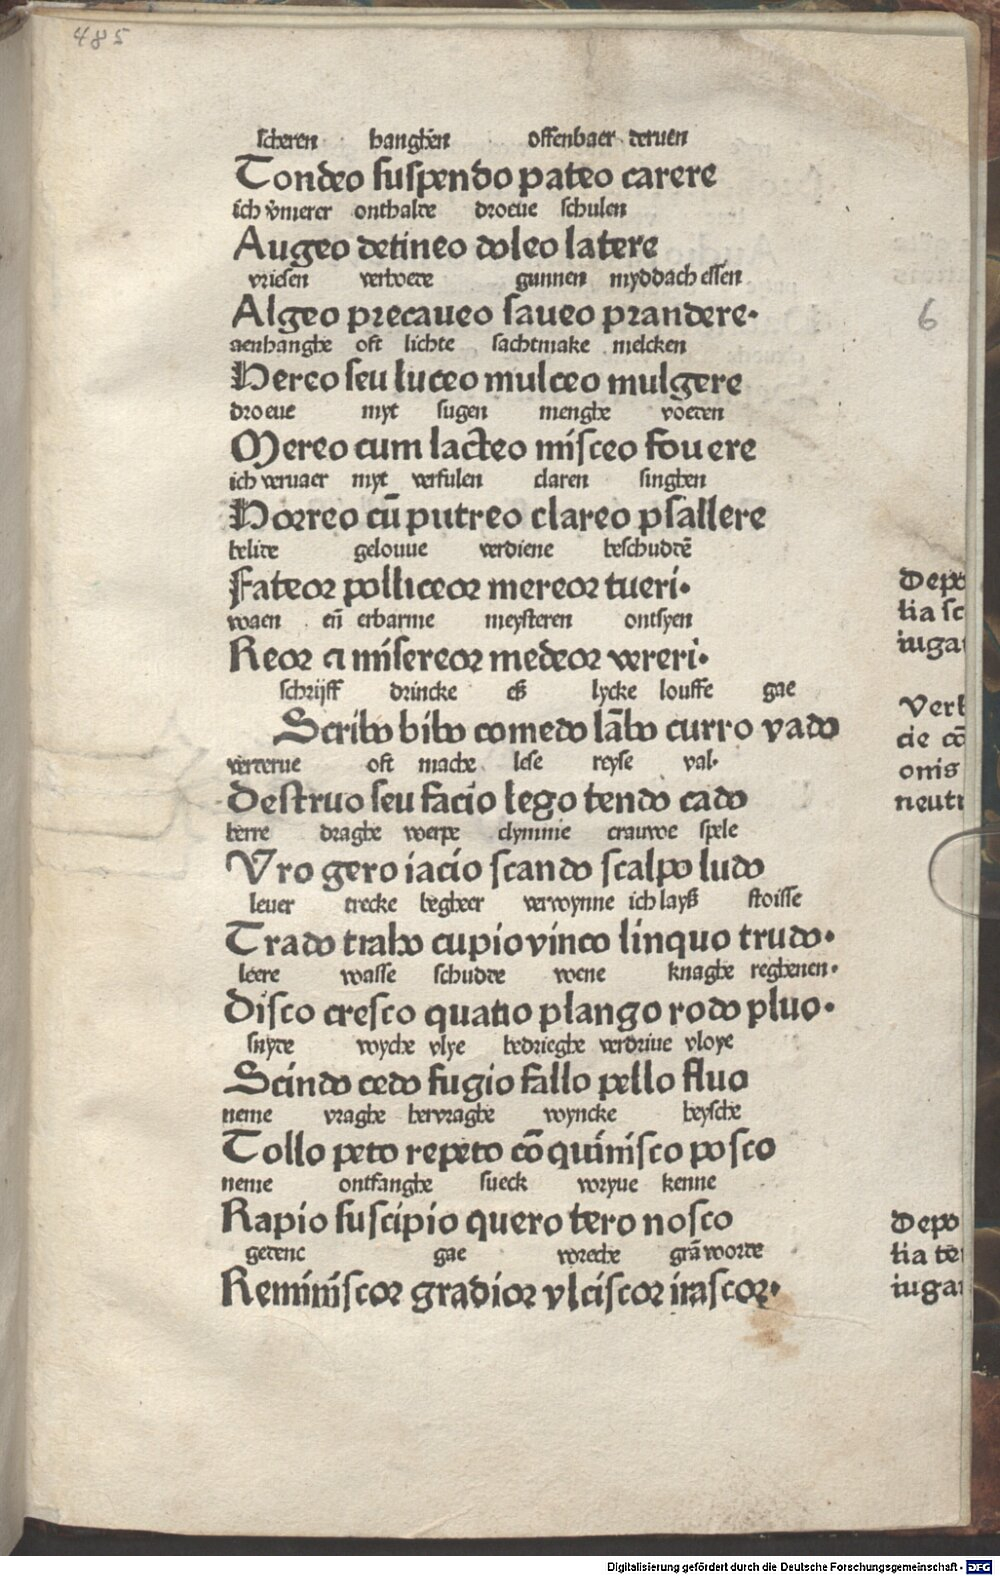 485
scheren hanghen offenbaer deruen
Tondeo suspendo pateo carere
ich vmerer onthalte droeue schulen
Augeo detineo doleo latere
vriesen verhoete gunnen myddach essen
Algeo precaueo faueo prandere.
6
aenhanghe oft lichte sachtmake melcken
Hereo seu luceo mulceo mulgere
droeue myt sugen menghe voeten
Mereo cum lacteo misceo fouere
ich veruaer myt verfulen claren singhen
Horreo cū putreo clareo psallere
belite gelouue verdiene beschudtē
Fateor polliceor mereor tueri.
waen eñ erbarme meysteren ontsyen
Reor et misereor medeor vereri.
schrijff drincke eß lycke louffe gae
Scribo bibo comedo lābo curro vado
verterue oft mache lese reyse val.
Destruo seu facio lego tendo cado
berre draghe werpe clymme crauwe spele
Vro gero iacio scando scalpo ludo
leuer trecke begheer verwynne ich layß stoisse
Trado traho cupio vinco linquo trudo.
leere wasse schudte wene knaghe reghenen.
Disco cresco quatio plango rodo pluo.
snyte wyche vlye bedrieghe verdriue vloye
Scindo cedo fugio fallo pello fluo
neme vraghe hervraghe woyncke heysche
Tollo peto repeto cōquinisco posco
neme ontfanghe sueck wryue kenne
Rapio suscipio quero tero nosco
gedenc gae wreche grā worde
Reminiscor gradior vlciscor irascor.
Depo
lia sc
iuga
Verb
cie cō
onis
neutr
Depo
lia te
iuga
Digitalisierung gefördert durch die Deutsche Forschungsgemeinschaft - DFG